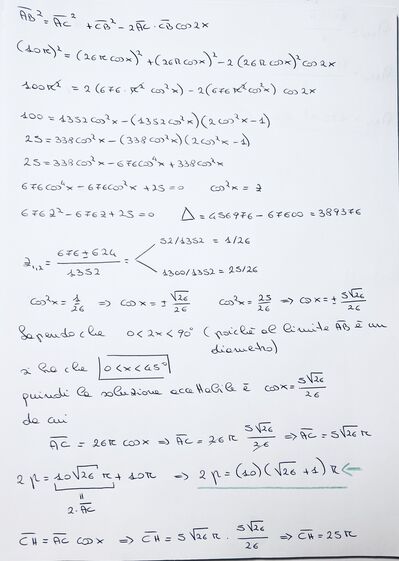 AB² = AC² + CB² - 2AC · CB cos2x
(10r)² = (26r cosx)² + (26r cosx)² - 2(26r cosx)² cos2x
100r² = 2(676 · r² cos²x) - 2(676r² cos²x) cos2x
100 = 1352cos²x - (1352cos²x)(2cos²x - 1)
25 = 338cos²x - (338cos²x)(2cos²x - 1)
25 = 338cos²x - 676cos⁴x + 338cos²x
676cos⁴x - 676cos²x + 25 = 0 cos²x = z
676z² - 676z + 25 = 0 Δ = 456976 - 67600 = 389376
z₁,₂ = (676 ± 624)/1352 = 52/1352 = 1/26
1300/1352 = 25/26
cos²x = 1/26 ⇒ cosx = ± √26/26 cos²x = 25/26 ⇒ cosx = ± 5√26/26
Sapendo che 0 < 2x < 90° (poiché al limite AB è un
diametro)
si ha che 0 < x < 45°
quindi la soluzione accettabile è cosx = 5√26/26
da cui
AC = 26r cosx ⇒ AC = 26r 5√26/26 ⇒ AC = 5√26 r
2p = 10√26 r + 10r ⇒ 2p = (10)(√26 + 1)r ←
=
2 · AC
CH = AC cosx ⇒ CH = 5√26 r · 5√26/26 ⇒ CH = 25r